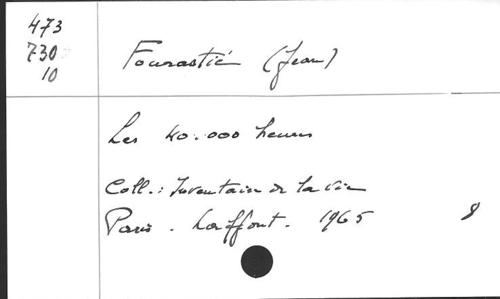 473
730
10
Fourastié (Jean)
Les 40.000 heures
Coll.: Inventaire de la vie
Paris. Laffont. 1965 8